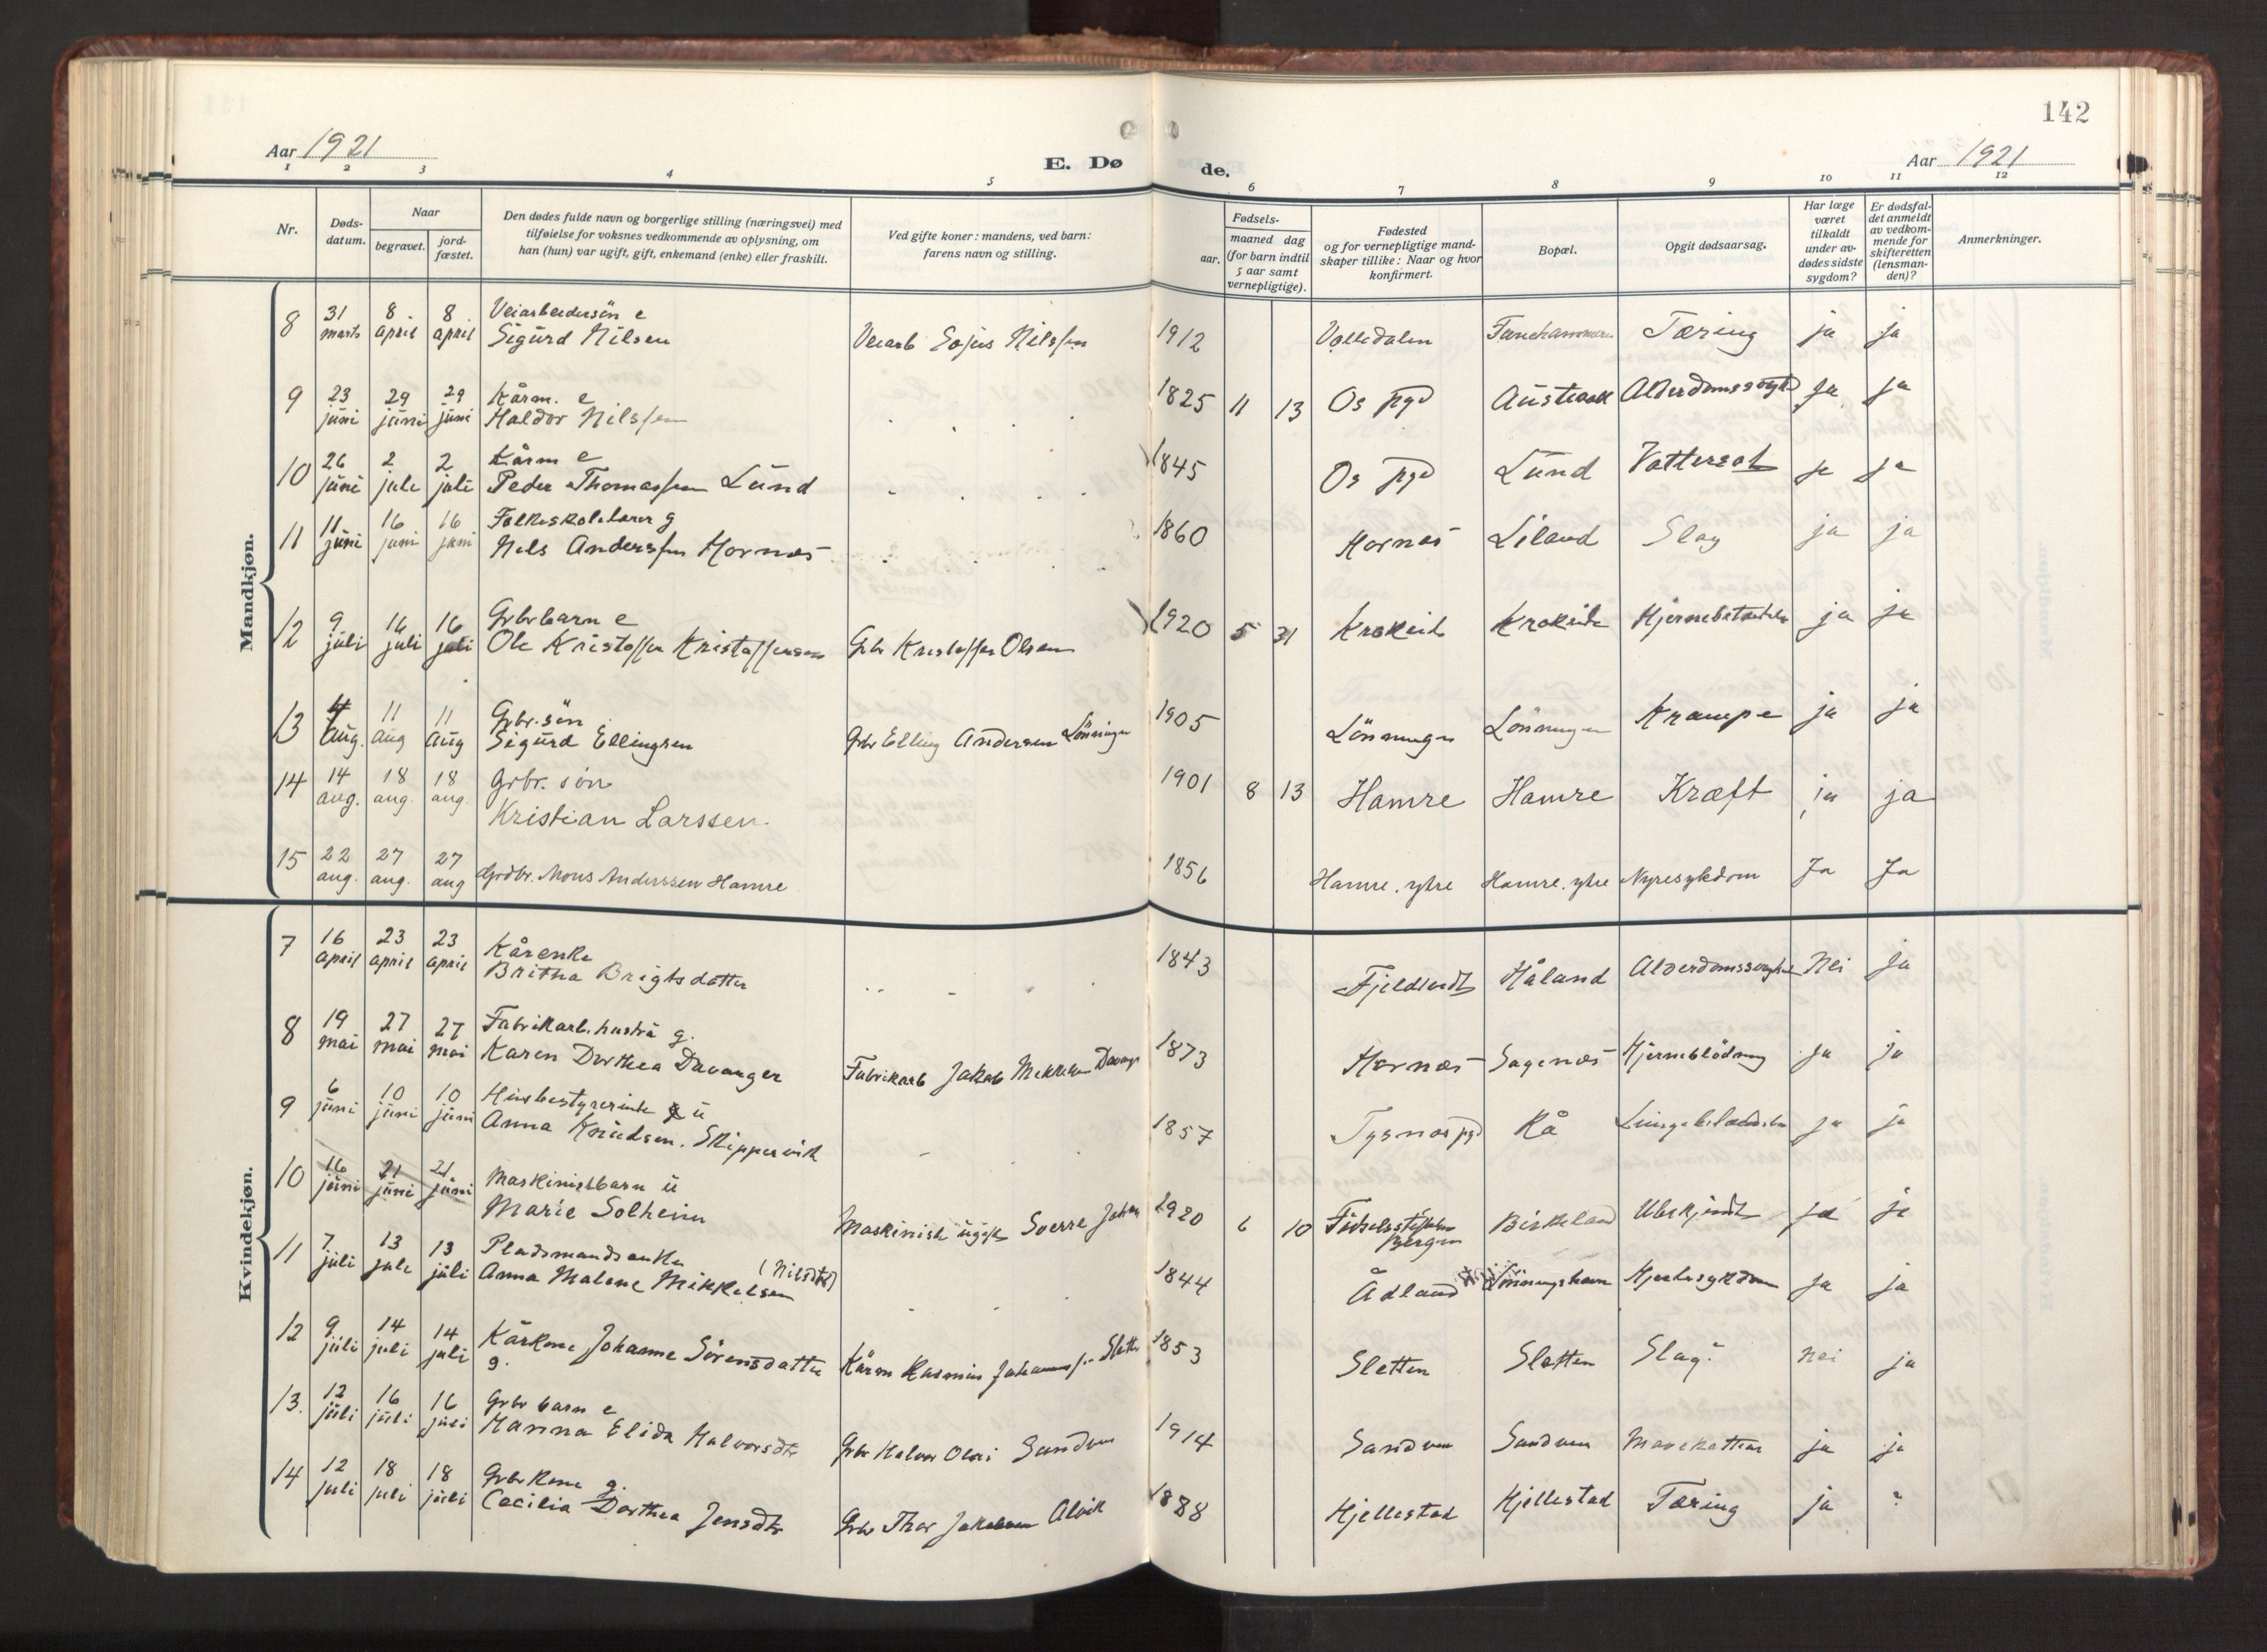 142
Aar 1921
E. Døde.
Aar 1921
1 2 3 4 5 6 7 8 9 10 11 12
Nr.
Døds-
datum.
Naar
begravet.
jord-
fæstet.
Den dødes fulde navn og borgerlige stilling (næringsvei) med
tilføielse for voksnes vedkommende av oplysning, om
han (hun) var ugift, gift, enkemand (enke) eller fraskilt.
Ved gifte koner: mandens, ved barn:
farens navn og stilling.
Fødsels-
aar.
maaned dag
(for barn indtil
5 aar samt
vernepligtige).
Fødested
og for vernepligtige mand-
skaper tillike: Naar og hvor
konfirmert.
Bopæl.
Opgit dødsaarsag.
Har læge
været
tilkaldt
under av-
dødes sidste
sygdom?
Er dødsfal-
det anmeldt
av vedkom-
mende for
skifteretten
(lensman-
den)?
Anmerkninger.
Mandkjøn.
8 31 marts 8 april 8 april Veiarbeidersön e
Sigurd Nilsen Veiarb Nilssen 1912 Tæring ja ja
9 23 juni 29 juni 29 juni Kårm. e
Haldor Nilssen 1825 11 13 Os pgd ja ja
10 26 juni 2 juli 2 juli Kårm e
Peder Thomassen Lund 1845 Os pgd Lund Vattersot ja ja
11 11 juni 16 juni 16 juni Folkeskolelærer g
Nils Anderssen Hornæs 1860 Hornæs Liland Slag ja ja
12 9 juli 16 juli 16 juli Grbr barn e
Ole Kristoffer Kristoffersen Gbr Kristoffer Olsen 1920 5 31 Krokeide Krokeide ja ja
13 4 aug. 11 aug 11 aug Grbr. sön
Sigurd Ellingsen Gbr Elling Andersen Lönningen 1905 Lönningen Lönningen Krampe ja ja
14 14 aug. 18 aug. 18 aug. Grbr. søn
Kristian Larssen. 1901 8 13 Hamre Hamre Kræft ja ja
15 22 aug. 27 aug. 27 aug Grdbr. Mons Anderssen Hamre 1856 Hamre. ytre Hamre. ytre Nyresykdom Ja Ja
Kvindekjøn.
7 16 april 23 april 23 april Kårenke
Britha Brigtsdatter 1843 Håland Nei ja
8 19 mai 27 mai 27 mai Fabrikarb. hustru g.
Karen Dorthea Davanger Fabrikarb Jakob 1873 Hornæs Sagenæs Hjerneblödning ja ja
9 6 juni 10 juni 10 juni Husbestyrerinde u
Anna Knudsen. Skippervik 1857 Tysnæs pgd Rå ja ja
10 16 juni 21 juni 21 juni Maskinistbarn u
Marie Solheim Maskinist ugift Sverre 1920 6 10 Födselsstiftelsen
Bergen Birkeland Ubekjendt ja ja
11 7 juli 13 juli 13 juli Pladsmandsenke
Anna Malene Mikkelsen (Nilsdtr) 1844 Ådland Lönningshavn Hjertesykdom ja ja
12 9 juli 14 juli 14 juli Kårkone Johanne Sörensdatter
g. Kårm Rasmus Johannessen Sletten 1853 Sletten Sletten Slag? nei ja
13. 12 juli 16 juli 16 juli Gbr barn e
Hanna Elida Halvorsdtr Gbr Halvor Olai Sandven 1914 Sandven Sandven ja ja
14 12 juli 18 juli 18 juli Gbr kone g.
Cecilia Dorthea Jensdtr Gbr Thor Jakobsen Alvik 1888 Hjellestad Hjellestad Tæring ja ?